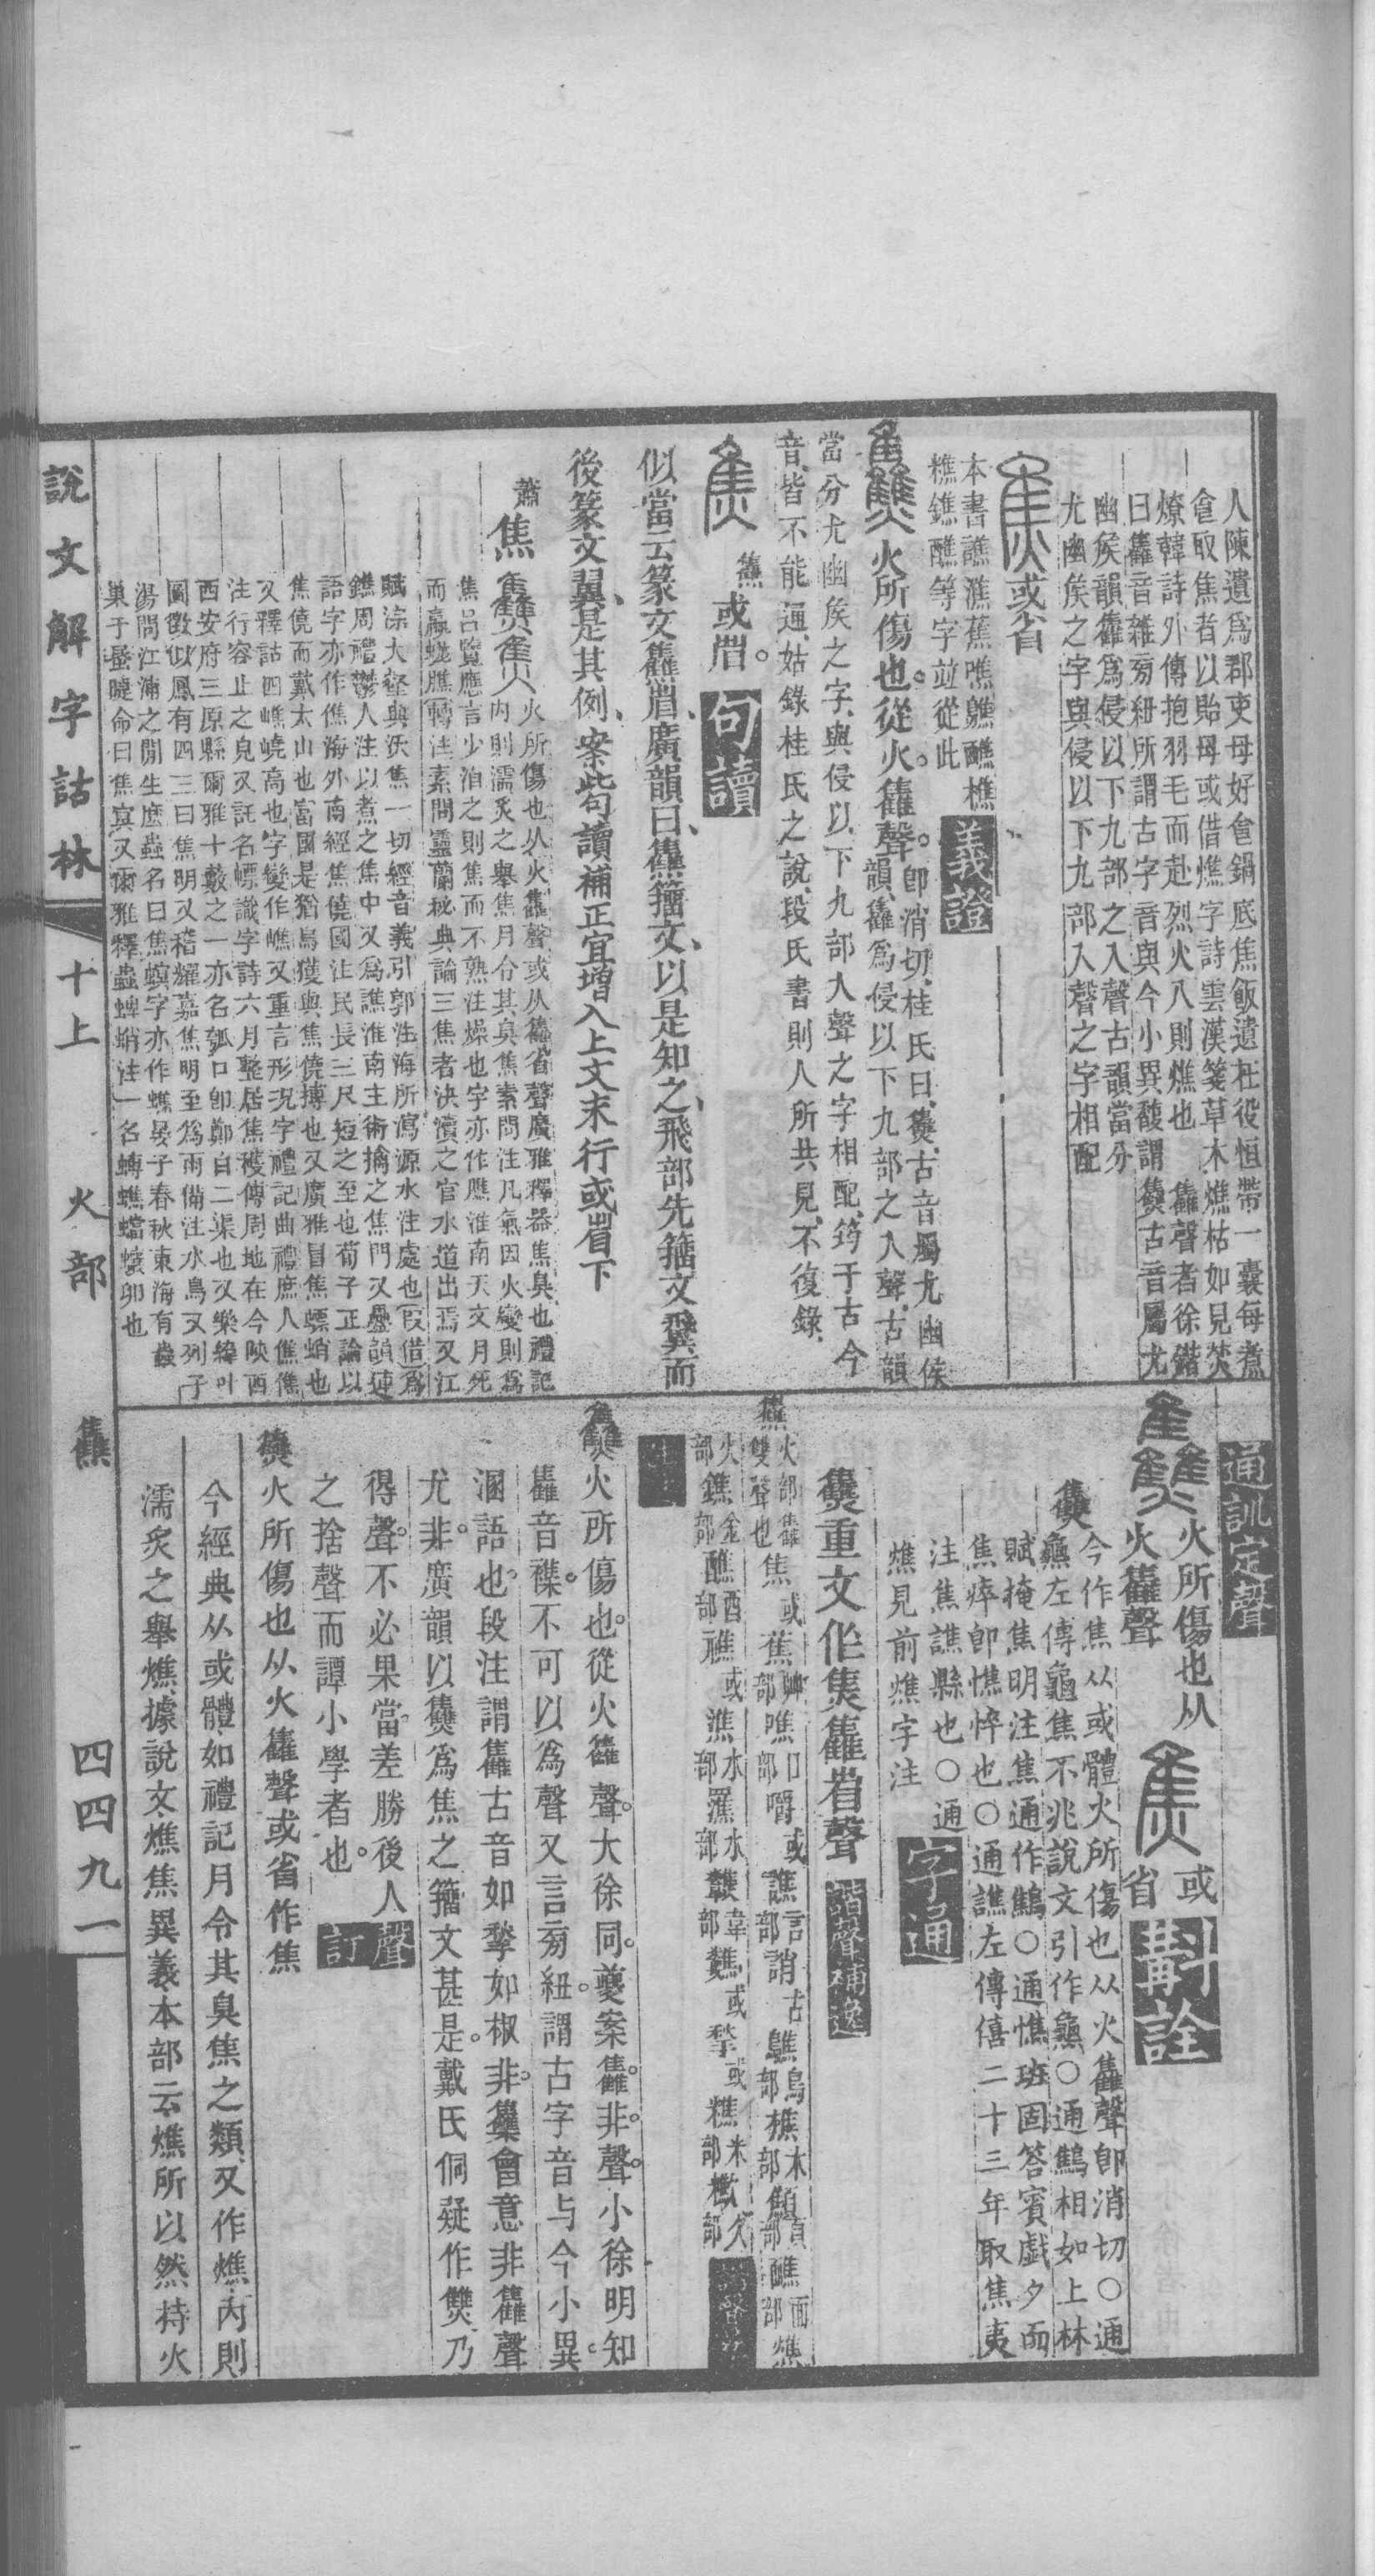 人陳遺爲郡吏母好食鍋底焦飯遺在役恒帶一囊每煮
食取焦者以貽母或借燋字詩雲漢箋草木燋枯如見焚
燎韓詩外傳抱羽毛而赴烈火八則燋也 雥聲者徐鍇
曰雥音雜㫄紐所謂古字音與今小異馥謂 𤓪古音屬尤
幽矦韻雥爲侵以下九部之入聲古韻當分
尤幽矦之字與侵以下九部入聲之字相配
焦 或省
本書譙潐蕉噍鷦醮樵
樵鐎醮等字竝從此
義證
𤓪 火所傷也。從火。雥聲。即消切、桂氏曰、𤓪、古音屬尤幽侯
韻、雥爲侵以下九部之入聲、古韻
當分尤幽矦之字、與侵以下九部入聲之字相配、筠于古今
音、皆不能通、姑錄桂氏之說、段氏書則人所共見、不復錄、
焦 𤓪或省。
句讀
似當云篆文𤓪省、廣韻曰、𤓪籀文、以是知之、飛部先籀文𩙺而
後篆文翼、是其例、案此句讀補正宜增入上文末行或省下
蕭
焦 𤓪 焦 火所傷也从火雥聲或从雥省聲廣雅釋器焦臭也禮記
內則濡炙之舉焦月令其臭焦素問注凡氣因火變則爲
焦呂覽應言少洎之則焦而不熟注燥也字亦作膲淮南天文月死
而蠃蛖膲轉注素問靈蘭秘典論三焦者決瀆之官水道出焉又江
賦淙大壑與沃焦一切經音義引郭注海所瀉源水注處也假借爲
鐎周禮鬱人注以煮之焦中又爲譙淮南主術擒之焦門又疊韻連
語字亦作僬海外南經焦僥國注民長三尺短之至也荀子正論以
焦僥而戴太山也富國是猶烏獲與焦僥搏也又廣雅冒焦螵蛸也
又釋詁四嶕嶢高也字變作嶕又重言形況字禮記曲禮庶人僬僬
注行容止之皃又託名幖識字詩六月整居焦穫傳周地在今陝西
西安府三原縣爾雅十藪之一亦名瓠口即鄭白二渠也又樂緯叶
圖徵似鳳有四三曰焦明又稽耀嘉焦明至爲雨備注水鳥又列子
湯問江浦之閒生麽蟲名曰焦螟字亦作蟭晏子春秋東海有蟲
巢于蟁睫命曰焦冥又爾雅釋蟲蜱蛸注一名蟳蟭蟷蠰卵也
通訓定聲
𤓪 火所傷也从
火雥聲
焦 或
省
斠詮
𤓪 今作焦从或體火所傷也从火雥聲即消切〇通
龜左傳龜焦不兆說文引作𪚰〇通鷦相如上林
賦掩焦明注焦通作鷦〇通憔班固答賓戲夕而
焦瘁即憔悴也〇通譙左傳僖二十三年取焦夷
注焦譙縣也〇通
燋見前燋字注
字通
𤓪重文作焦雥省聲
諧聲補逸
𤓪火部雥
雙聲也焦或蕉艸部噍口部嚼或譙言部誚古鷦鳥部樵木部顦頁部醮面部燋
火部鐎金部醮酉部𥼚或潐水部㶍水部
𤓪火所傷也。從火雥聲。大徐同。夔案。雥。非。聲。小徐明知
雥音襍。不可以爲聲又言㫄紐。謂古字音与今小異。
溷語也。段注謂雥古音如揫如椒非。𤓪會意非雥聲
尤非。廣韻以𤓪爲焦之籀文甚是。戴氏侗疑作𤓪乃
得聲。不必果當。差勝後人
之捨聲而譚小學者也。
聲訂
𤓪火所傷也从火雥聲或省作焦
今經典从或體如禮記月令其臭焦之類又作燋內則
濡炙之舉燋據說文燋焦異義本部云燋所以然持火
說文解字詁林 十上 火部 𤓪 四四九一